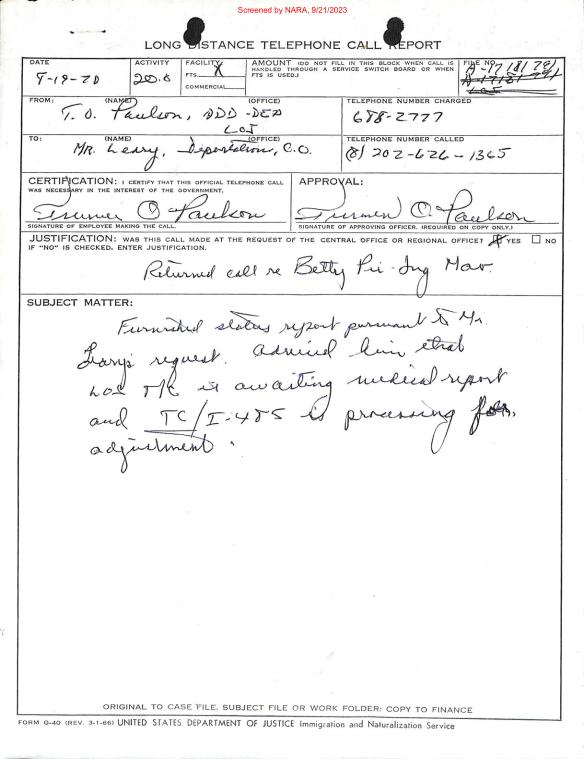 Screened by NARA, 9/21/2023
LONG DISTANCE TELEPHONE CALL REPORT
DATE
ACTIVITY
FACILITY
FTS X
COMMERCIAL
AMOUNT (DO NOT FILL IN THIS BLOCK WHEN CALL IS HANDLED THROUGH A SERVICE SWITCH BOARD OR WHEN FTS IS USED.)
FILE NO.
20.6
A-17 181 791
FROM: (NAME) (OFFICE)
T. O. Paulson, ADD-D&P
LOS
TELEPHONE NUMBER CHARGED
688-2777
TO: (NAME) (OFFICE)
Mr. Leary, Deportation, C.O.
TELEPHONE NUMBER CALLED
(8) 202-626-1365
CERTIFICATION: I CERTIFY THAT THIS OFFICIAL TELEPHONE CALL
WAS NECESSARY IN THE INTEREST OF THE GOVERNMENT.
Truman O Paulson
SIGNATURE OF EMPLOYEE MAKING THE CALL.
APPROVAL:
Truman O. Paulson
SIGNATURE OF APPROVING OFFICER. (REQUIRED ON COPY ONLY.)
JUSTIFICATION: WAS THIS CALL MADE AT THE REQUEST OF THE CENTRAL OFFICE OR REGIONAL OFFICE? YES NO
IF "NO" IS CHECKED, ENTER JUSTIFICATION.
Returned call re Betty Pei-Ing Mao.
SUBJECT MATTER:
Furnished status report pursuant to Mr.
Leary's request. Advised him that
LOS is awaiting medical report
and TC/I-485 is processing for
adjustment.
ORIGINAL TO CASE FILE. SUBJECT FILE OR WORK FOLDER: COPY TO FINANCE
FORM G-40 (REV. 3-1-66) UNITED STATES DEPARTMENT OF JUSTICE Immigration and Naturalization Service